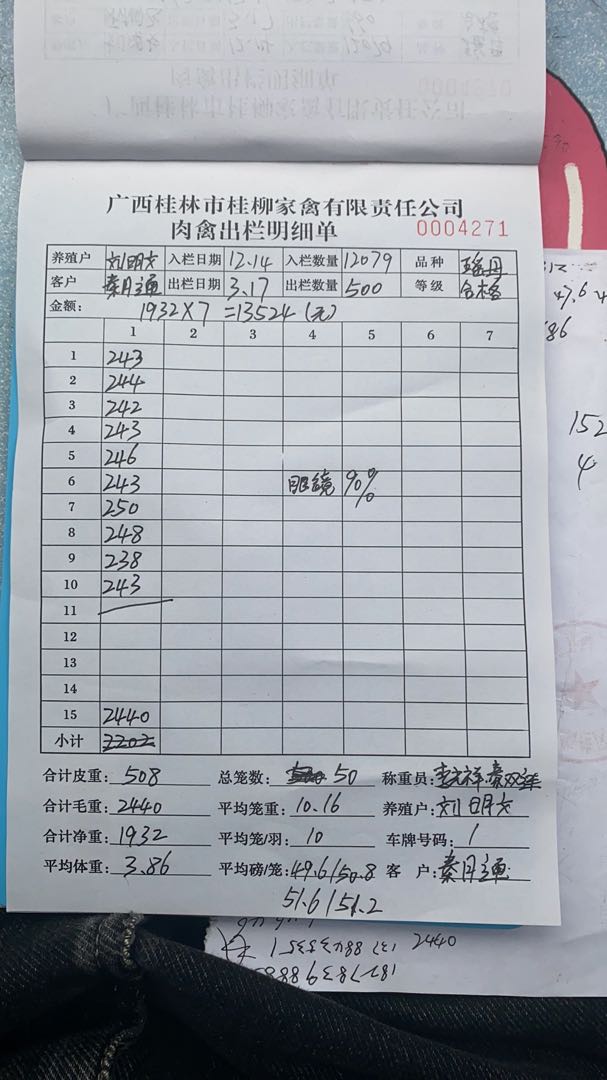 广西桂林市桂柳家禽有限责任公司
肉禽出栏明细单 0004271
养殖户 刘明文 入栏日期 12.14 入栏数量 12079 品种 瑶丹
客户 秦月通 出栏日期 3.17 出栏数量 500 等级 合格
金额: 1932×7=13524(元)
1 2 3 4 5 6 7
1 243
2 244
3 242
4 243
5 246
6 243 眼镜 90%
7 250
8 248
9 238
10 243
11
12
13
14
15 2440
小计 2202
合计皮重: 508 总笼数: 50 称重员:
合计毛重: 2440 平均笼重: 10.16 养殖户: 刘明文
合计净重: 1932 平均笼/羽: 10 车牌号码: 1
平均体重: 3.86 平均磅/笼: 49.6/50.8 客户: 秦月通
51.6/51.2
2440